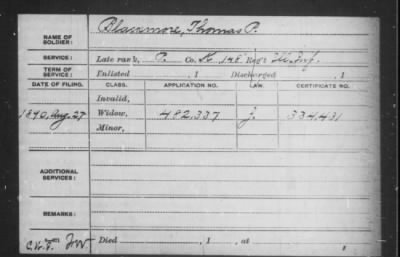 NAME OF SOLDIER: Blassmore, Thomas P.
SERVICE: Late rank, P. Co. K, 148 Reg't Ill. Inf.
TERM OF SERVICE: Enlisted , 1 Discharged , 1
DATE OF FILING. CLASS. APPLICATION NO. LAW. CERTIFICATE NO.
Invalid,
1890, Aug. 27 Widow, 482,337 J. 334,431
Minor,
ADDITIONAL SERVICES:
REMARKS:
Died , 1 , at